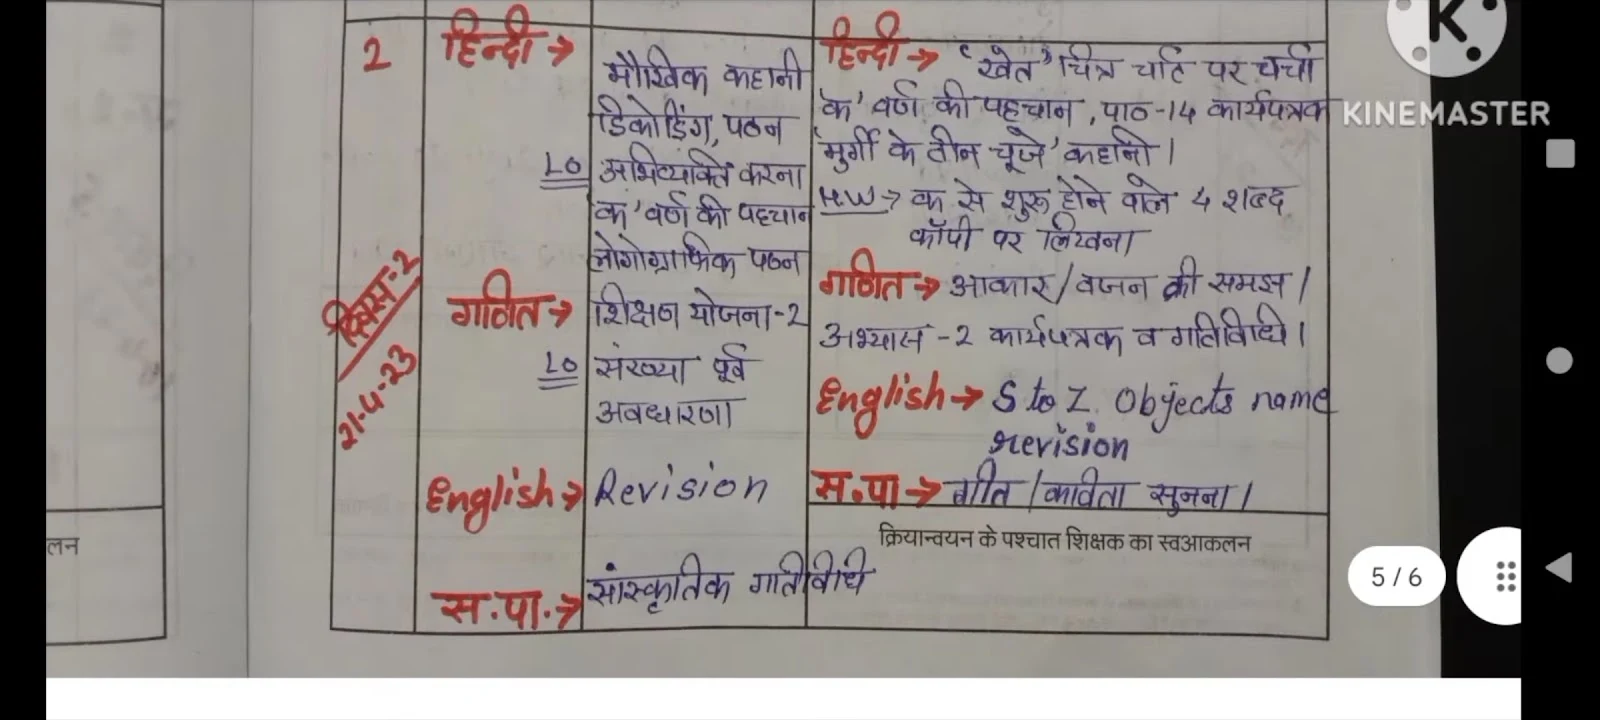 2
दिवस-2
21-4-23
हिन्दी →
मौखिक कहानी
डिकोडिंग, पठन
LO अभिव्यक्ति करना
'क' वर्ण की पहचान
लोगोग्राफिक पठन
गणित → शिक्षण योजना-2
LO संख्या पूर्व
अवधारणा
English → Revision
स.पा. → सांस्कृतिक गतिविधि
हिन्दी → 'खेत' चित्र चार्ट पर चर्चा
'क' वर्ण की पहचान, पाठ-14 कार्यपत्रक
'मुर्गी के तीन चूजे' कहानी।
H.W → क से शुरू होने वाले 4 शब्द
कॉपी पर लिखना
गणित → आकार/वजन की समझ।
अभ्यास-2 कार्यपत्रक व गतिविधि।
English → S to Z Objects name
revision
स.पा → गीत/कविता सुनना।
क्रियान्वयन के पश्चात शिक्षक का स्वआकलन
लन
K
KINEMASTER
5/6